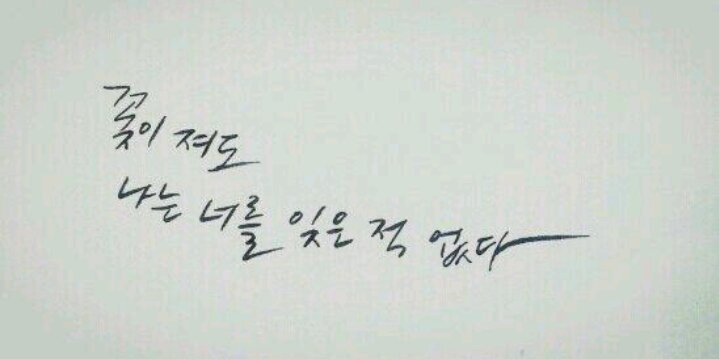 꽃이 져도
나는 너를 잊은 적 없다